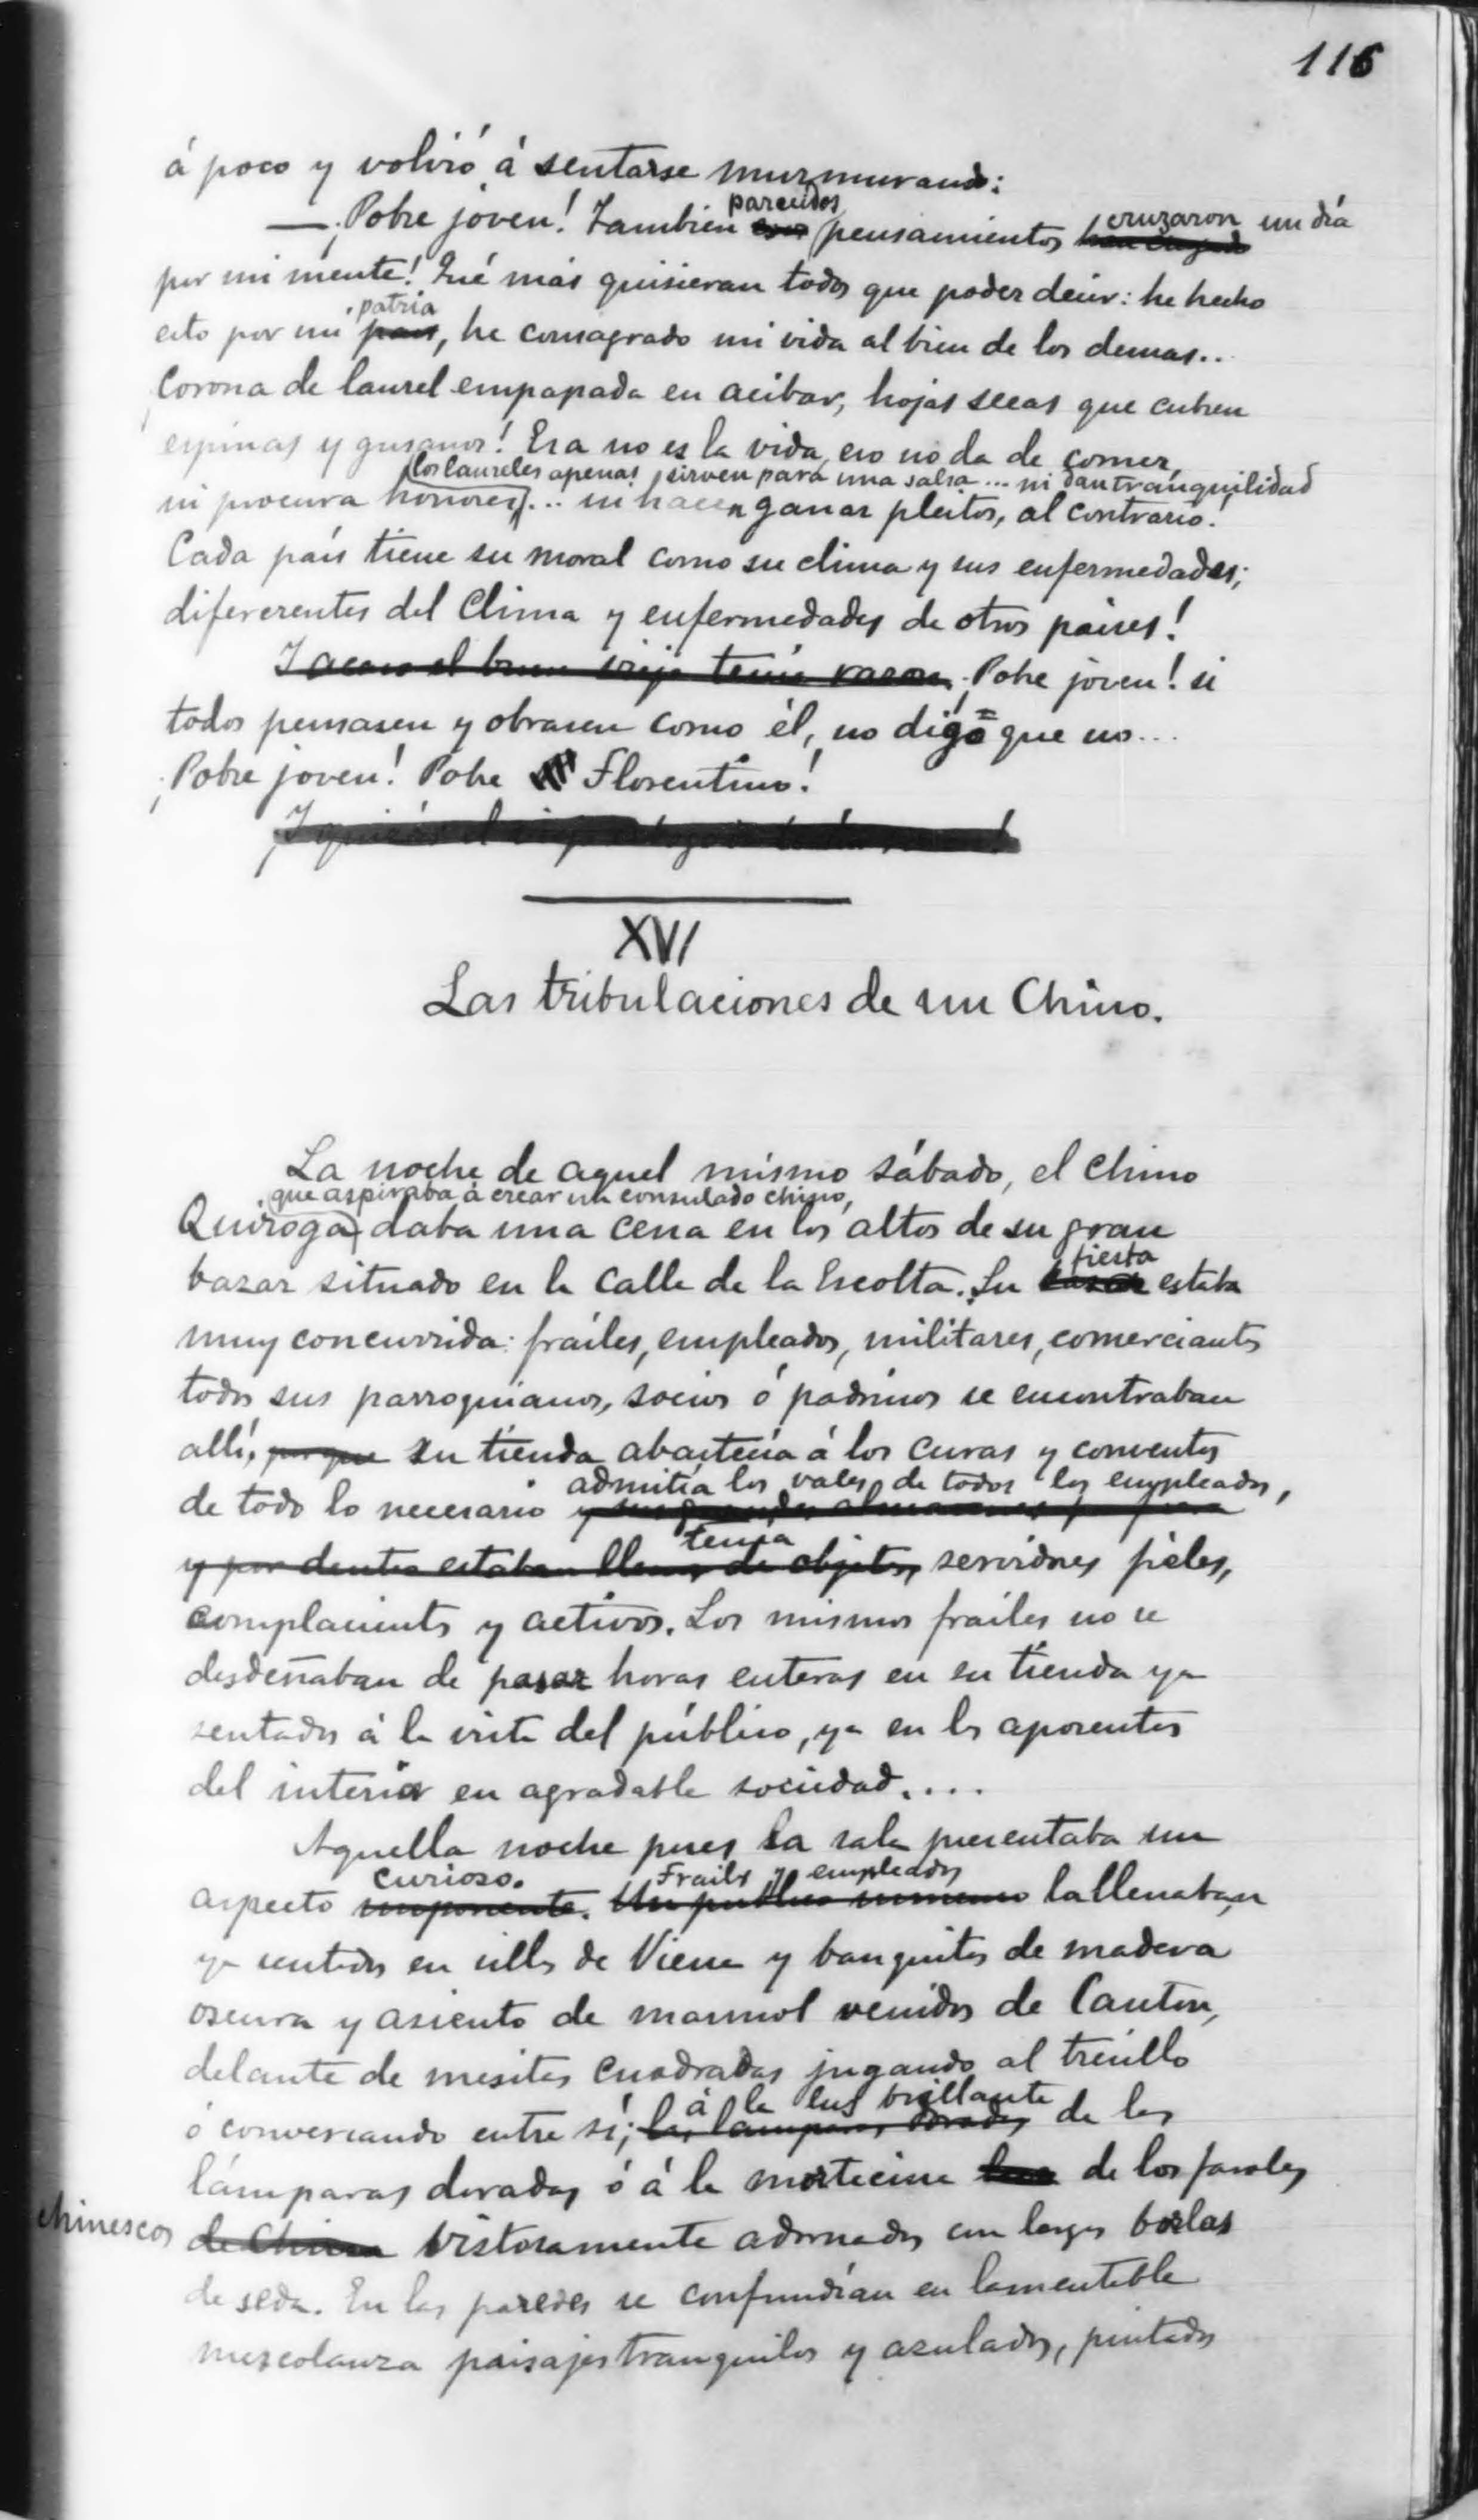 116
á poco y volvió á sentarse murmurando:
—¡Pobre joven! También parecidos pensamientos cruzaron un día
por mi mente! Qué más quisieran todos que poder decir: he hecho
esto por mi patria, he consagrado mi vida al bien de los demas..
Corona de laurel empapada en acibar, hojas secas que cubren
espinas y gusanos! Esa no es la vida, eso no da de comer,
los laureles apenas sirven para una salsa... ni dan tranquilidad
ni procura honores... ni hacen ganar pleitos, al contrario!
Cada país tiene su moral como su clima y sus enfermedades;
difererentes del Clima y enfermedades de otros países!
Y acaso el buen viejo tenía razon. ¡Pobre joven! si
todos pensasen y obrasen como él, no digo que no...
¡Pobre joven! Pobre Florentino!
XVI
Las tribulaciones de un Chino.
La noche de aquel mismo sábado, el chino
que aspiraba á crear un consulado chino,
Quiroga daba una cena en los altos de su gran
fiesta
bazar situado en la Calle de la Escolta. Su estaba
muy concurrida: frailes, empleados, militares, comerciantes
todos sus parroquianos, socios ó padrinos se encontraban
allí, porque su tienda abastecía á los curas y conventos
admitía los vales de todos los empleados,
de todo lo necesario
tenía
y por dentro estaban llenos de objetos, servidores fieles,
complacientes y activos. Los mismos frailes no se
desdeñaban de pasar horas enteras en su tienda ya
sentados á la vista del público, ya en los aposentos
del interior en agradable sociedad....
Aquella noche pues la sala presentaba un
curioso. Frailes y empleados
aspecto imponente. Un publico inmenso la llenaban
ya sentados en sillas de Viena y banquitos de madera
oscura y asiento de marmol venidos de Canton,
delante de mesitas cuadradas jugando al tresillo
á la luz brillante
ó conversando entre sí; las lamparas doradas de las
lámparas doradas ó á la mortecina luz de los faroles
chinescos de China vistosamente adornados con largas borlas
de seda. En las paredes se confundían en lamentable
mezcolanza paisajes tranquilos y azulados, pintados